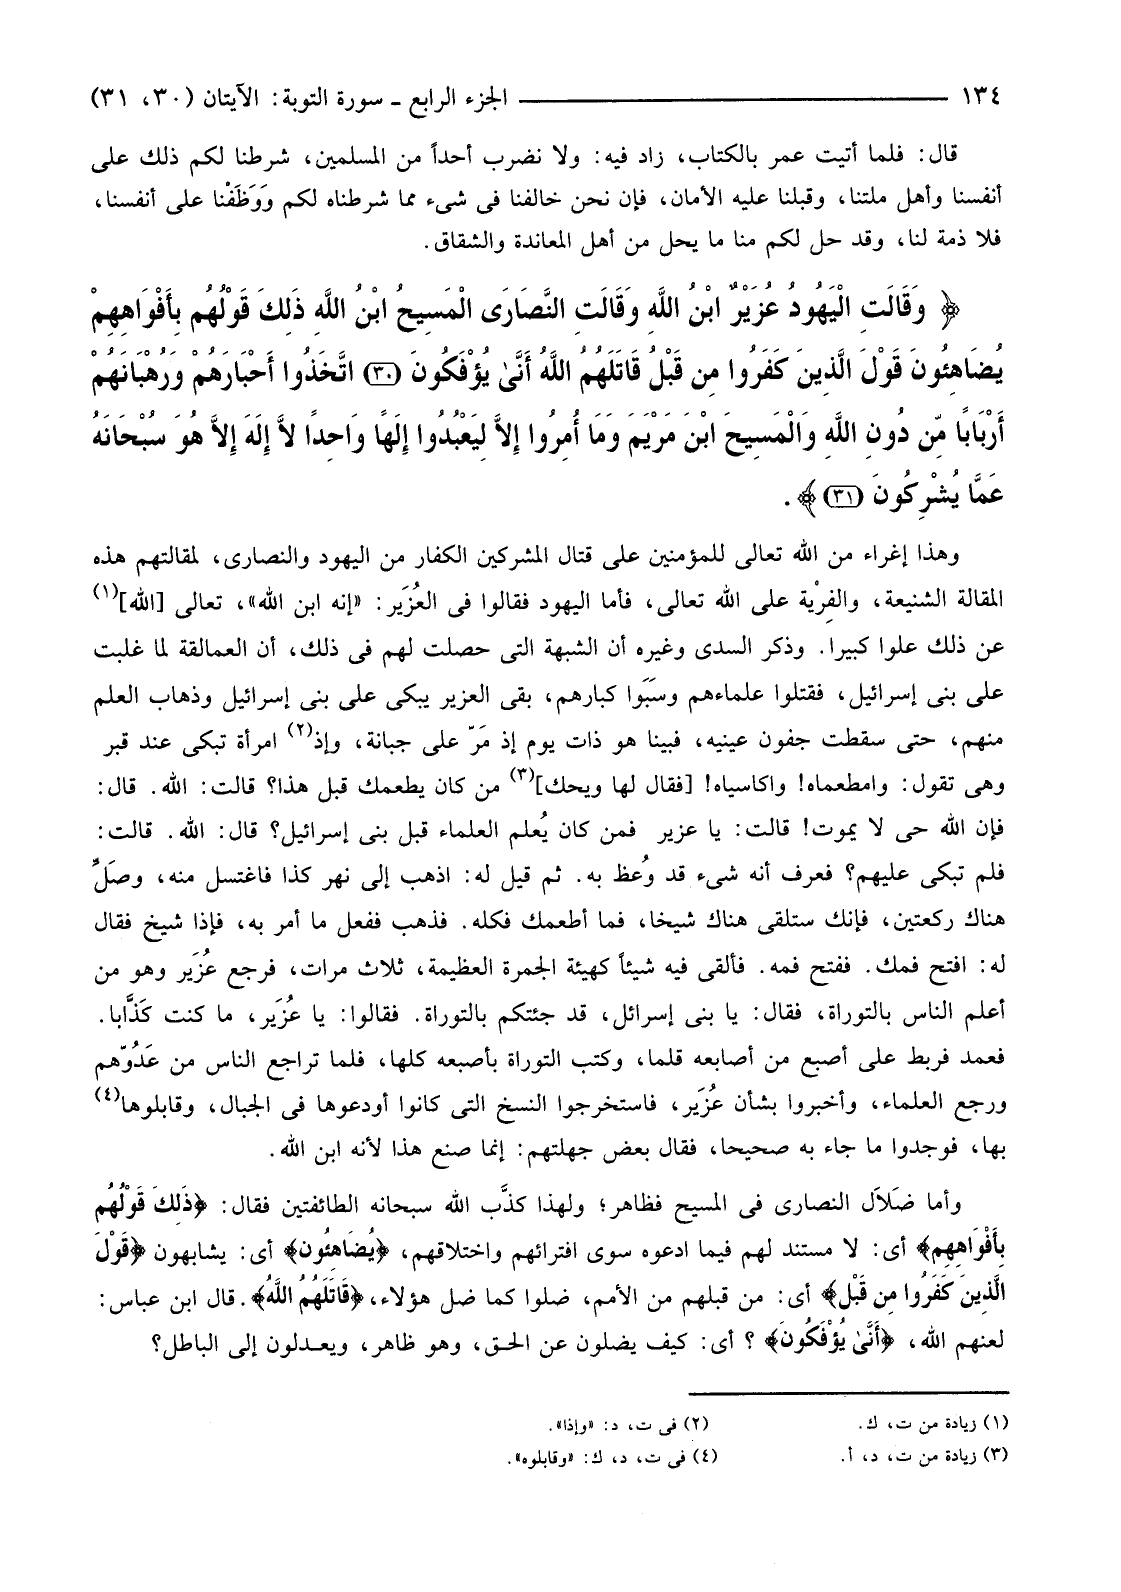 ١٣٤ ــــــــــــــــــــــــــ الجزء الرابع ـ سورة التوبة: الآيتان (٣٠، ٣١)
قال: فلما أتيت عمر بالكتاب، زاد فيه: ولا نضرب أحداً من المسلمين، شرطنا لكم ذلك على
أنفسنا وأهل ملتنا، وقبلنا عليه الأمان، فإن نحن خالفنا فى شىء مما شرطناه لكم ووَظَفْنا على أنفسنا،
فلا ذمة لنا، وقد حل لكم منا ما يحل من أهل المعاندة والشقاق.
﴿ وَقَالَتِ الْيَهُودُ عُزَيْرٌ ابْنُ اللَّهِ وَقَالَتِ النَّصَارَى الْمَسِيحُ ابْنُ اللَّهِ ذَلِكَ قَوْلُهُم بِأَفْوَاهِهِمْ
يُضَاهِئُونَ قَوْلَ الَّذِينَ كَفَرُوا مِن قَبْلُ قَاتَلَهُمُ اللَّهُ أَنَّىٰ يُؤْفَكُونَ (٣٠) اتَّخَذُوا أَحْبَارَهُمْ وَرُهْبَانَهُمْ
أَرْبَابًا مِّن دُونِ اللَّهِ وَالْمَسِيحَ ابْنَ مَرْيَمَ وَمَا أُمِرُوا إِلاَّ لِيَعْبُدُوا إِلَهًا وَاحِدًا لاَّ إِلَهَ إِلاَّ هُوَ سُبْحَانَهُ
عَمَّا يُشْرِكُونَ (٣١)﴾.
وهذا إغراء من الله تعالى للمؤمنين على قتال المشركين الكفار من اليهود والنصارى، لمقالتهم هذه
المقالة الشنيعة، والفِرْية على الله تعالى، فأما اليهود فقالوا فى العُزَير: «إنه ابن الله»، تعالى [الله](١)
عن ذلك علوا كبيرا. وذكر السدى وغيره أن الشبهة التى حصلت لهم فى ذلك، أن العمالقة لما غلبت
على بنى إسرائيل، فقتلوا علماءهم وسَبَوا كبارهم، بقى العزير يبكى على بنى إسرائيل وذهاب العلم
منهم، حتى سقطت جفون عينيه، فبينا هو ذات يوم إذ مَرّ على جبانة، وإذ(٢) امرأة تبكى عند قبر
وهى تقول: وامطعماه! واكاسياه! [فقال لها ويحك](٣) من كان يطعمك قبل هذا؟ قالت: الله. قال:
فإن الله حى لا يموت! قالت: يا عزير فمن كان يُعلم العلماء قبل بنى إسرائيل؟ قال: الله. قالت:
فلم تبكى عليهم؟ فعرف أنه شىء قد وُعظ به. ثم قيل له: اذهب إلى نهر كذا فاغتسل منه، وصَلِّ
هناك ركعتين، فإنك ستلقى هناك شيخا، فما أطعمك فكله. فذهب ففعل ما أمر به، فإذا شيخ فقال
له: افتح فمك. ففتح فمه. فألقى فيه شيئاً كهيئة الجمرة العظيمة، ثلاث مرات، فرجع عُزَير وهو من
أعلم الناس بالتوراة، فقال: يا بنى إسرائل، قد جئتكم بالتوراة. فقالوا: يا عُزَير، ما كنت كَذَّابا.
فعمد فربط على أصبع من أصابعه قلما، وكتب التوراة بأصبعه كلها، فلما تراجع الناس من عَدُوّهم
ورجع العلماء، وأخبروا بشأن عُزَير، فاستخرجوا النسخ التى كانوا أودعوها فى الجبال، وقابلوها(٤)
بها، فوجدوا ما جاء به صحيحا، فقال بعض جهلتهم: إنما صنع هذا لأنه ابن الله.
وأما ضَلاَل النصارى فى المسيح فظاهر؛ ولهذا كذَّب الله سبحانه الطائفتين فقال: ﴿ذَلِكَ قَوْلُهُم
بِأَفْوَاهِهِم﴾ أى: لا مستند لهم فيما ادعوه سوى افترائهم واختلاقهم، ﴿يُضَاهِئُون﴾ أى: يشابهون ﴿قَوْلَ
الَّذِينَ كَفَرُوا مِن قَبْل﴾ أى: من قبلهم من الأمم، ضلوا كما ضل هؤلاء، ﴿قَاتَلَهُمُ اللَّهُ﴾. قال ابن عباس:
لعنهم الله، ﴿أَنَّىٰ يُؤْفَكُونَ﴾ ؟ أى: كيف يضلون عن الحق، وهو ظاهر، ويعدلون إلى الباطل؟
(١) زيادة من ت، ك. (٢) فى ت، د: «وإذا».
(٣) زيادة من ت، د، أ. (٤) فى ت، د، ك: «وقابلوه».